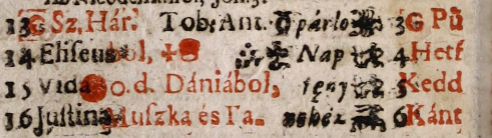 13 G Sz. Hár. Tob: Ant. párlo 3 G Pü
14 Eliseus ból, Nap 4 Hetf
15 Vida o. d. Dániából, fény 5 Kedd
16 Justina Muszka és Ta. nehéz 6 Kánt